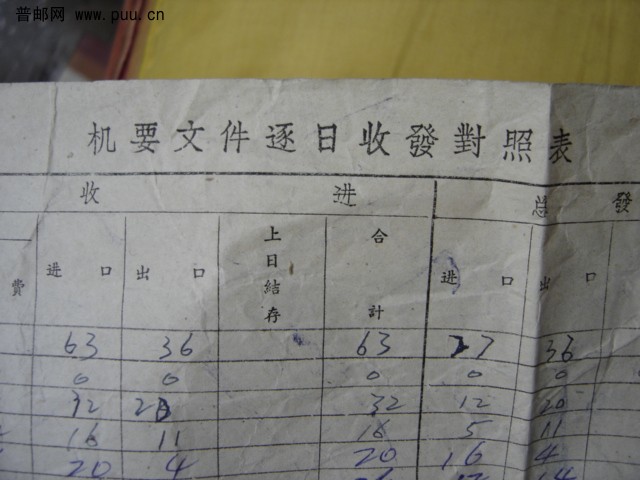 普邮网 www.puu.cn
机要文件逐日收發對照表
收 进 总 發
费 进口 出口 上日结存 合計 进口 出口
63 36 63 27 36
0 0 0 0 0
32 20 32 12 20
16 11 16 5 11
20 4 20 16 4